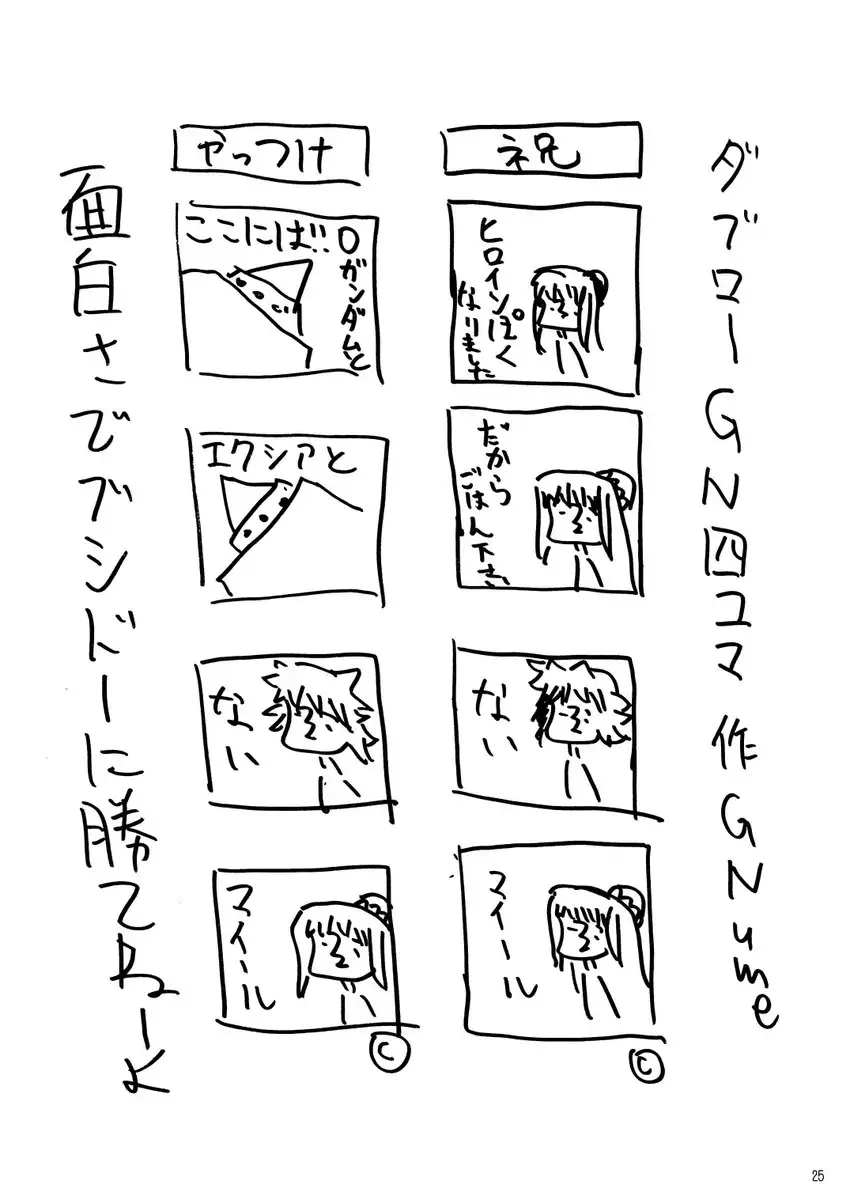 ダブローGN四コマ 作GNume
祝
ヒロインぽく
なりました
だから
ごはん下さい
ない
マイール
©
やっつけ
Oガンダムと
ここには!!
エクシアと
ない
マイール
©
面白さでブシドーに勝てねーよ
25